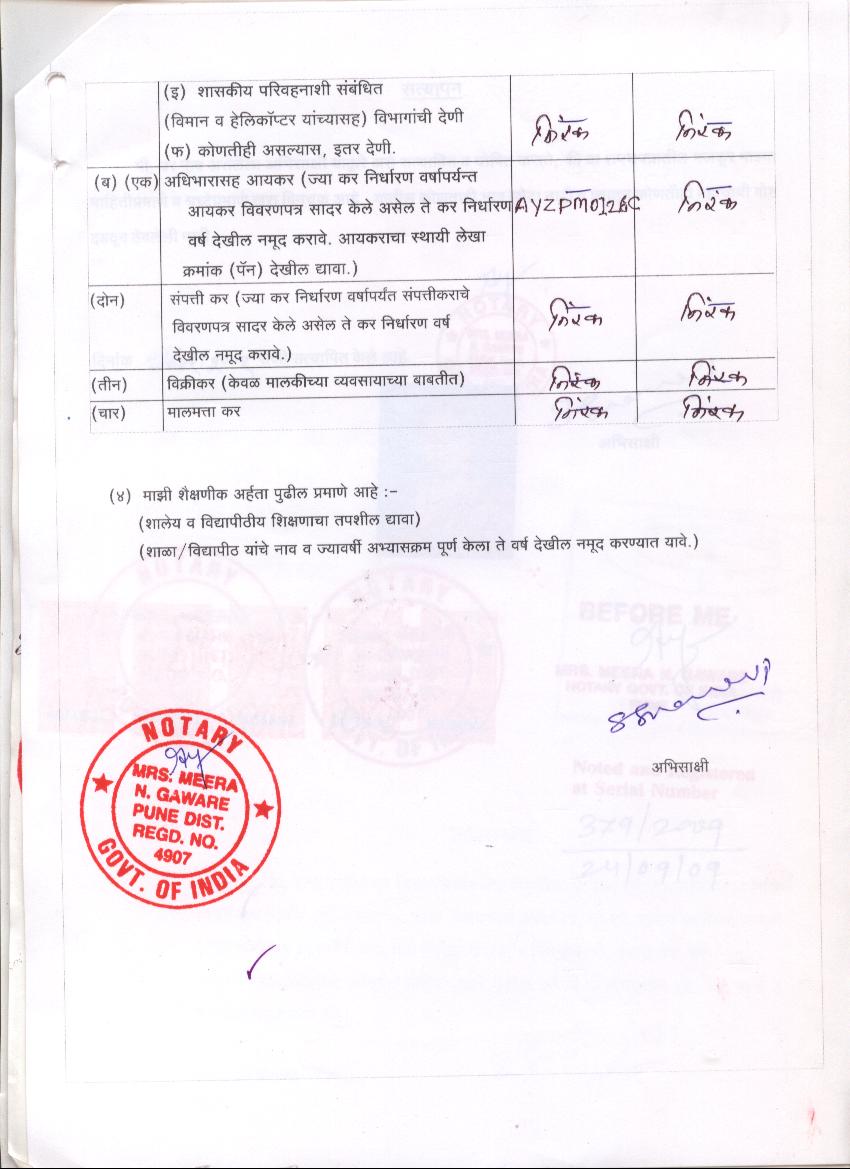 (इ) शासकीय परिवहनाशी संबंधित
(विमान व हेलिकॉप्टर यांच्यासह) विभागांची देणी निरंक निरंक
(फ) कोणतीही असल्यास, इतर देणी.
(ब) (एक) अधिभारासह आयकर (ज्या कर निर्धारण वर्षापर्यन्त
आयकर विवरणपत्र सादर केले असेल ते कर निर्धारण निरंक
वर्ष देखील नमूद करावे. आयकराचा स्थायी लेखा
क्रमांक (पॅन) देखील द्यावा.)
(दोन) संपत्ती कर (ज्या कर निर्धारण वर्षापर्यंत संपत्तीकराचे
विवरणपत्र सादर केले असेल ते कर निर्धारण वर्ष निरंक निरंक
देखील नमूद करावे.)
(तीन) विक्रीकर (केवळ मालकीच्या व्यवसायाच्या बाबतीत) निरंक निरंक
(चार) मालमत्ता कर निरंक निरंक
(४) माझी शैक्षणीक अर्हता पुढील प्रमाणे आहे :-
(शालेय व विद्यापीठीय शिक्षणाचा तपशील द्यावा)
(शाळा/विद्यापीठ यांचे नाव व ज्यावर्षी अभ्यासक्रम पूर्ण केला ते वर्ष देखील नमूद करण्यात यावे.)
BEFORE ME
अभिसाक्षी
NOTARY
MRS. MEERA
N. GAWARE
PUNE DIST.
REGD. NO.
4907
GOVT. OF INDIA
Noted and Registered
at Serial Number
379/2009
24/09/09